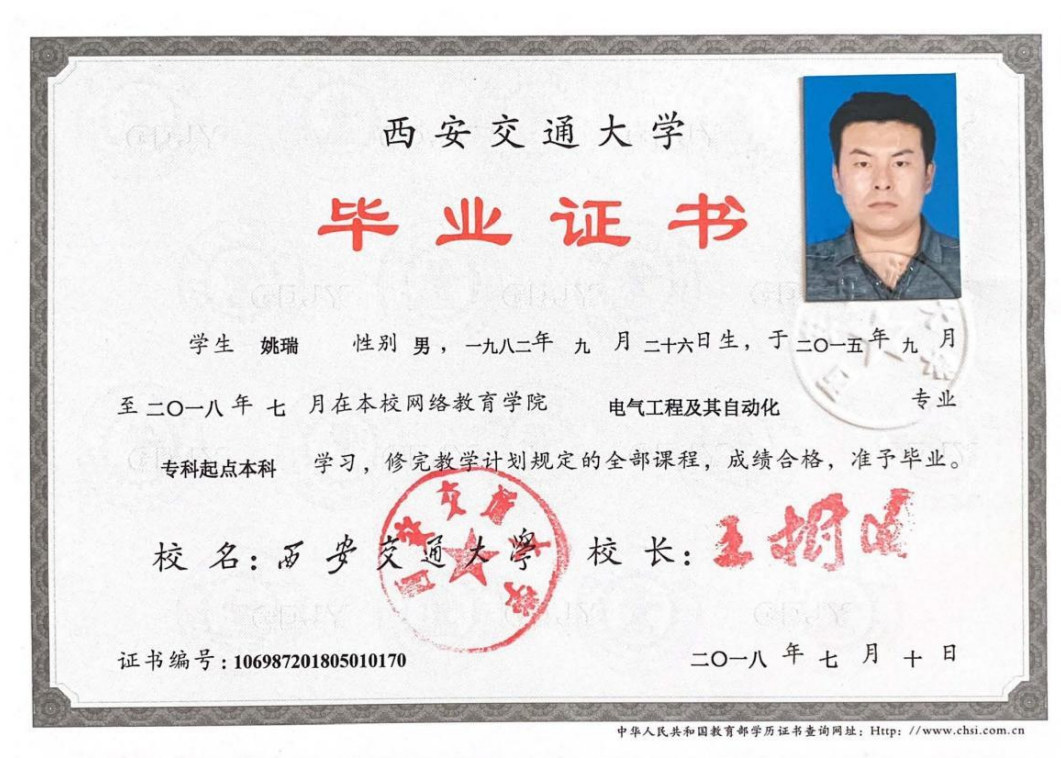 西安交通大学
毕业证书
学生 姚瑞 性别 男，一九八二年 九 月 二十六日生，于 二〇一五年 九 月
至 二〇一八 年 七 月在本校网络教育学院 电气工程及其自动化 专业
专科起点本科 学习，修完教学计划规定的全部课程，成绩合格，准予毕业。
校 名：西安交通大學 校 长：王树国
证书编号：106987201805010170 二〇一八 年 七 月 十 日
中华人民共和国教育部学历证书查询网址：Http：//www.chsi.com.cn